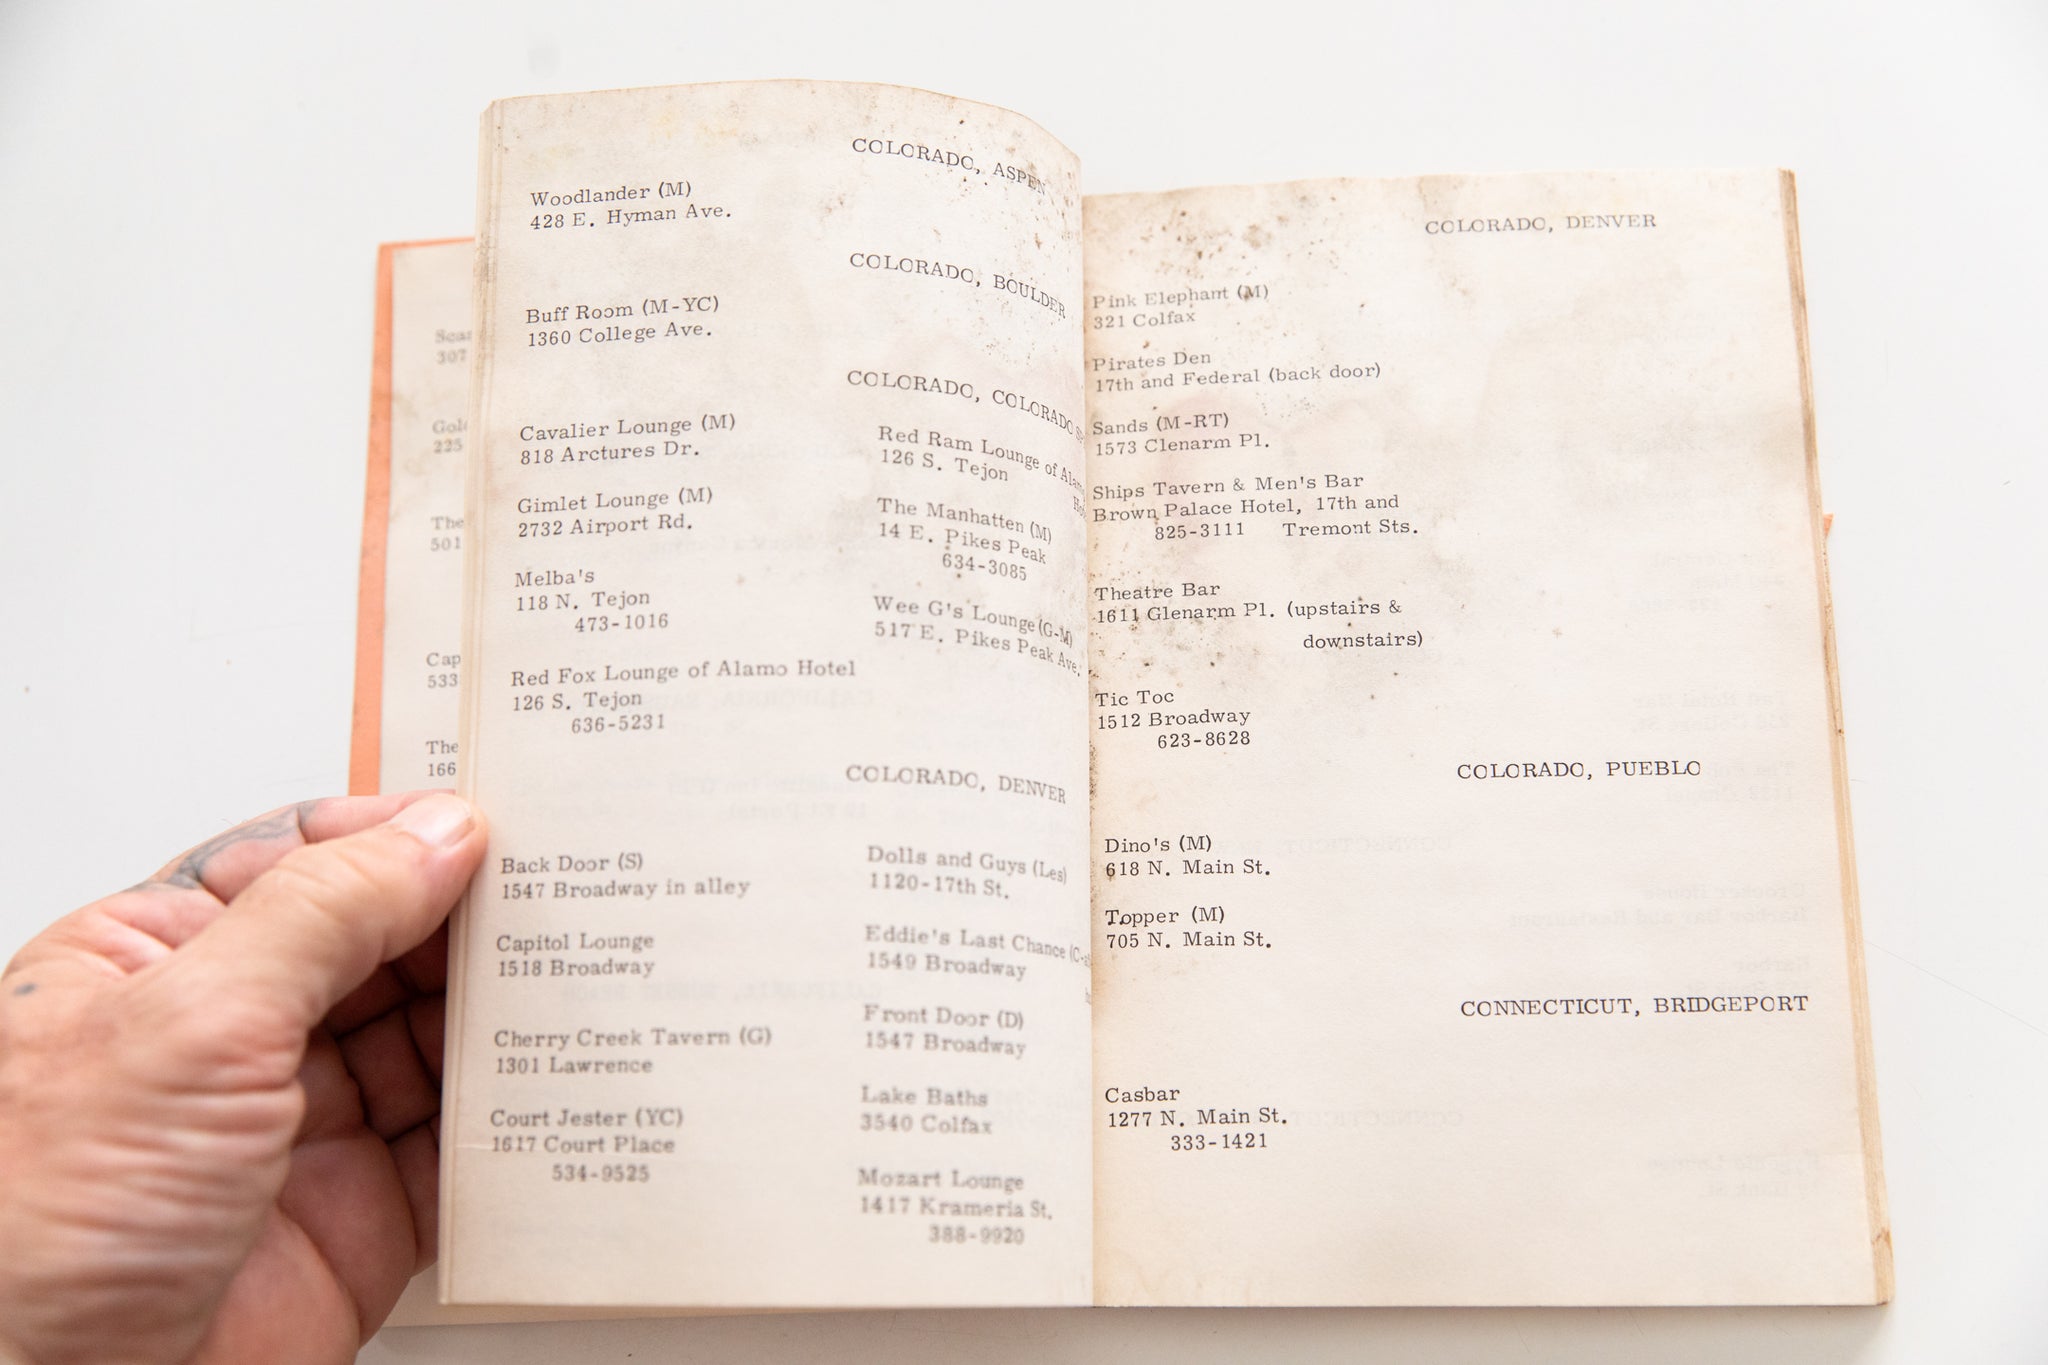 COLORADO, ASPEN
Woodlander (M)
428 E. Hyman Ave.
COLORADO, BOULDER
Buff Room (M-YC)
1360 College Ave.
COLORADO, COLORADO
Cavalier Lounge (M)
818 Arctures Dr.
Gimlet Lounge (M)
2732 Airport Rd.
Melba's
118 N. Tejon
473-1016
Red Fox Lounge of Alamo Hotel
126 S. Tejon
636-5231
Red Ram Lounge of
126 S. Tejon
The Manhatten (M)
14 E. Pikes Peak
634-3085
Wee G's Lounge (G-M)
517 E. Pikes Peak Ave.
COLORADO, DENVER
Back Door (S)
1547 Broadway in alley
Capitol Lounge
1518 Broadway
Cherry Creek Tavern (G)
1301 Lawrence
Court Jester (YC)
1617 Court Place
534-9525
Dolls and Guys (Les)
1120-17th St.
Eddie's Last Chance
1549 Broadway
Front Door (D)
1547 Broadway
Lake Baths
3540 Colfax
Mozart Lounge
1417 Krameria St.
388-9920
COLORADO, DENVER
Pink Elephant (M)
321 Colfax
Pirates Den
17th and Federal (back door)
Sands (M-RT)
1573 Clenarm Pl.
Ships Tavern & Men's Bar
Brown Palace Hotel, 17th and
825-3111 Tremont Sts.
Theatre Bar
1611 Glenarm Pl. (upstairs &
downstairs)
Tic Toc
1512 Broadway
623-8628
COLORADO, PUEBLO
Dino's (M)
618 N. Main St.
Topper (M)
705 N. Main St.
CONNECTICUT, BRIDGEPORT
Casbar
1277 N. Main St.
333-1421